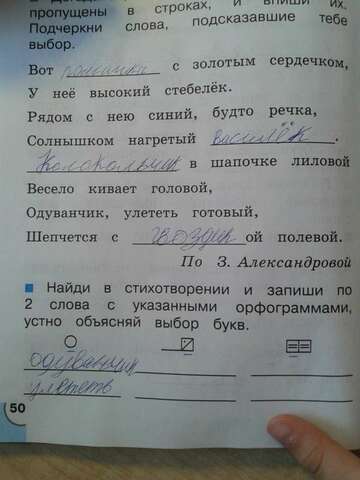 пропущены в строках, и впиши их.
Подчеркни слова, подсказавшие тебе
выбор.
Вот ромашка с золотым сердечком,
У неё высокий стебелёк.
Рядом с нею синий, будто речка,
Солнышком нагретый василёк.
Колокольчик в шапочке лиловой
Весело кивает головой,
Одуванчик, улететь готовый,
Шепчется с гвоздик ой полевой.
По З. Александровой
Найди в стихотворении и запиши по
2 слова с указанными орфограммами,
устно объясняй выбор букв.
одуванчик
улететь
50